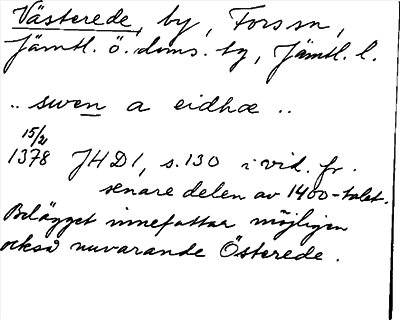 Västerede, by, Forssn,
Jämtl. ö. doms. tg, Jämtl. l.
.. swen a eidhæ ..
15/2
1378 JHD1, s.130 i vid. fr.
senare delen av 1400-talet.
Belägget innefattar möjligen
också nuvarande Österede.